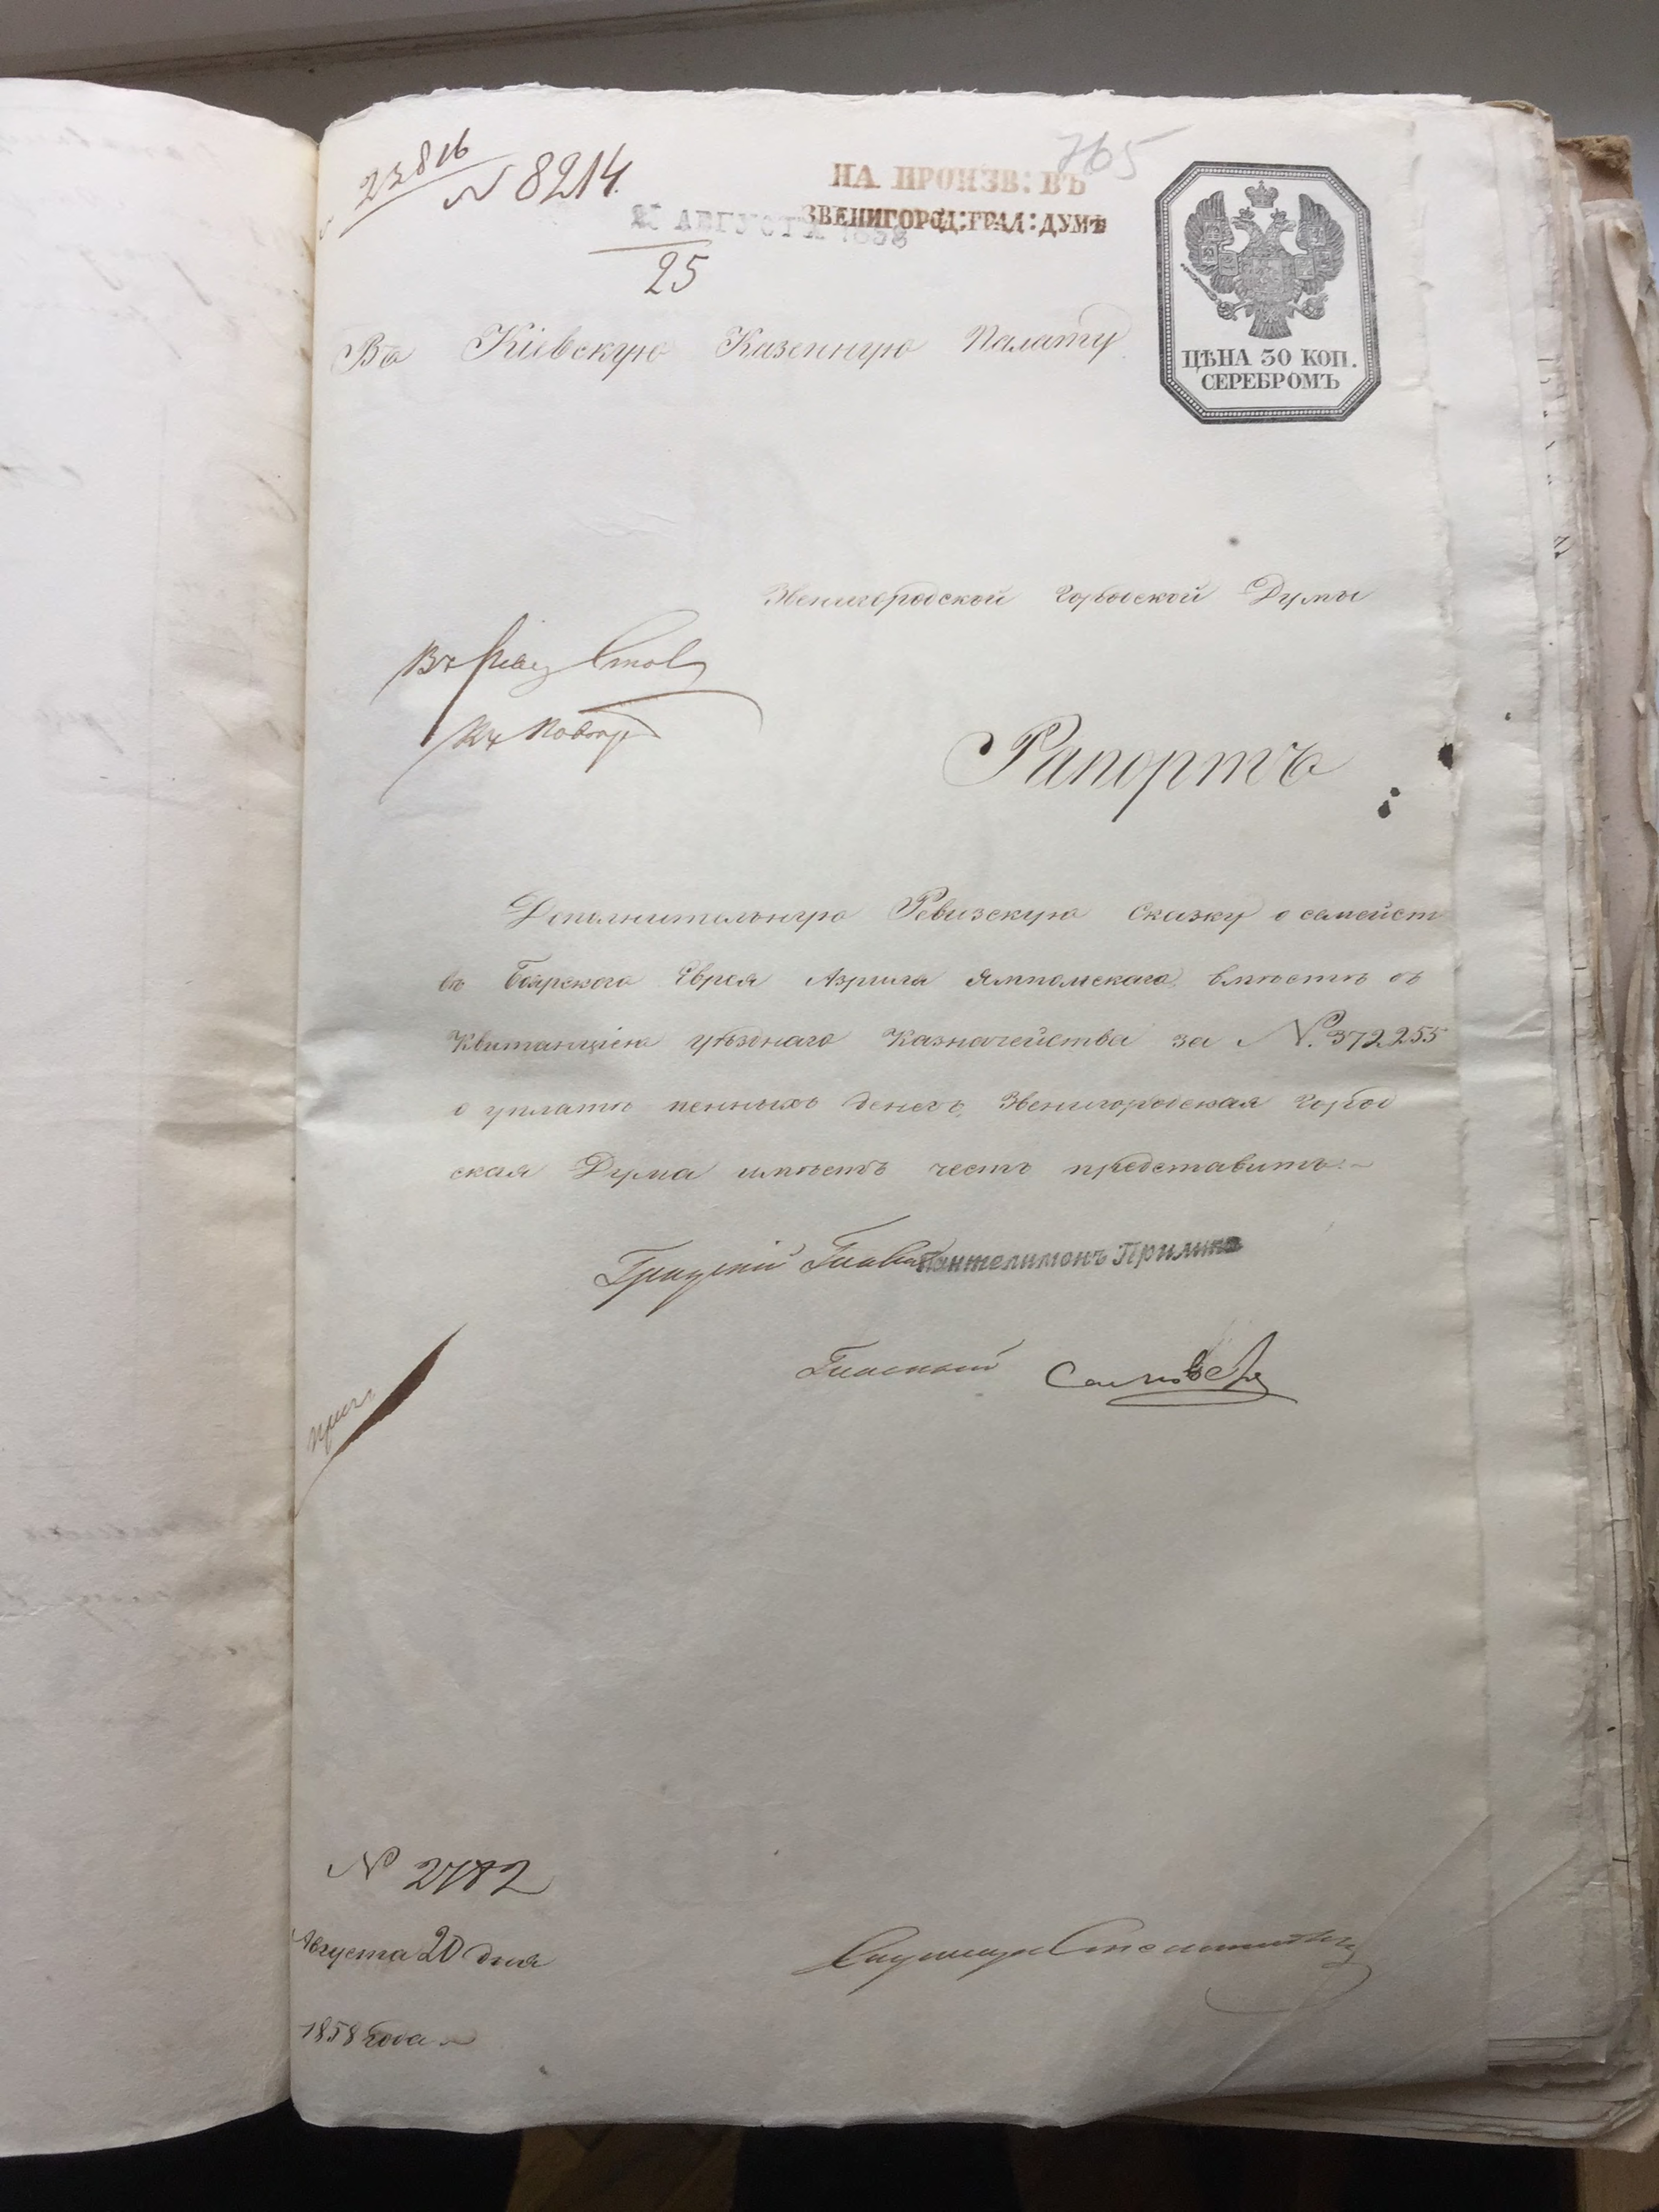 765
22816
№ 8214.
НА ПРОИЗВ: ВЪ
ЗВЕНИГОРОД:ГРАД:ДУМѢ
АВГУСТА 1858
25
ЦѢНА 30 КОП.
СЕРЕБРОМЪ
Въ Кіевскую Казенную Палату
Звенигородской Городской Думы
Рапортъ
Дополнительную Ревизскую Сказку о семейст
вѣ Боярского Еврея Азриля Ямпольскаго, вмѣстѣ съ
Квитанціею уѣзднаго Казначейства за №. 372255
о уплатѣ пенныхъ денегъ, Звенигородская Город
ская Дума имѣетъ честь представить.
Градскій Глава Пантелимонъ Прилипко
Гласный
№ 2782
Августа 20 дня
1858 года